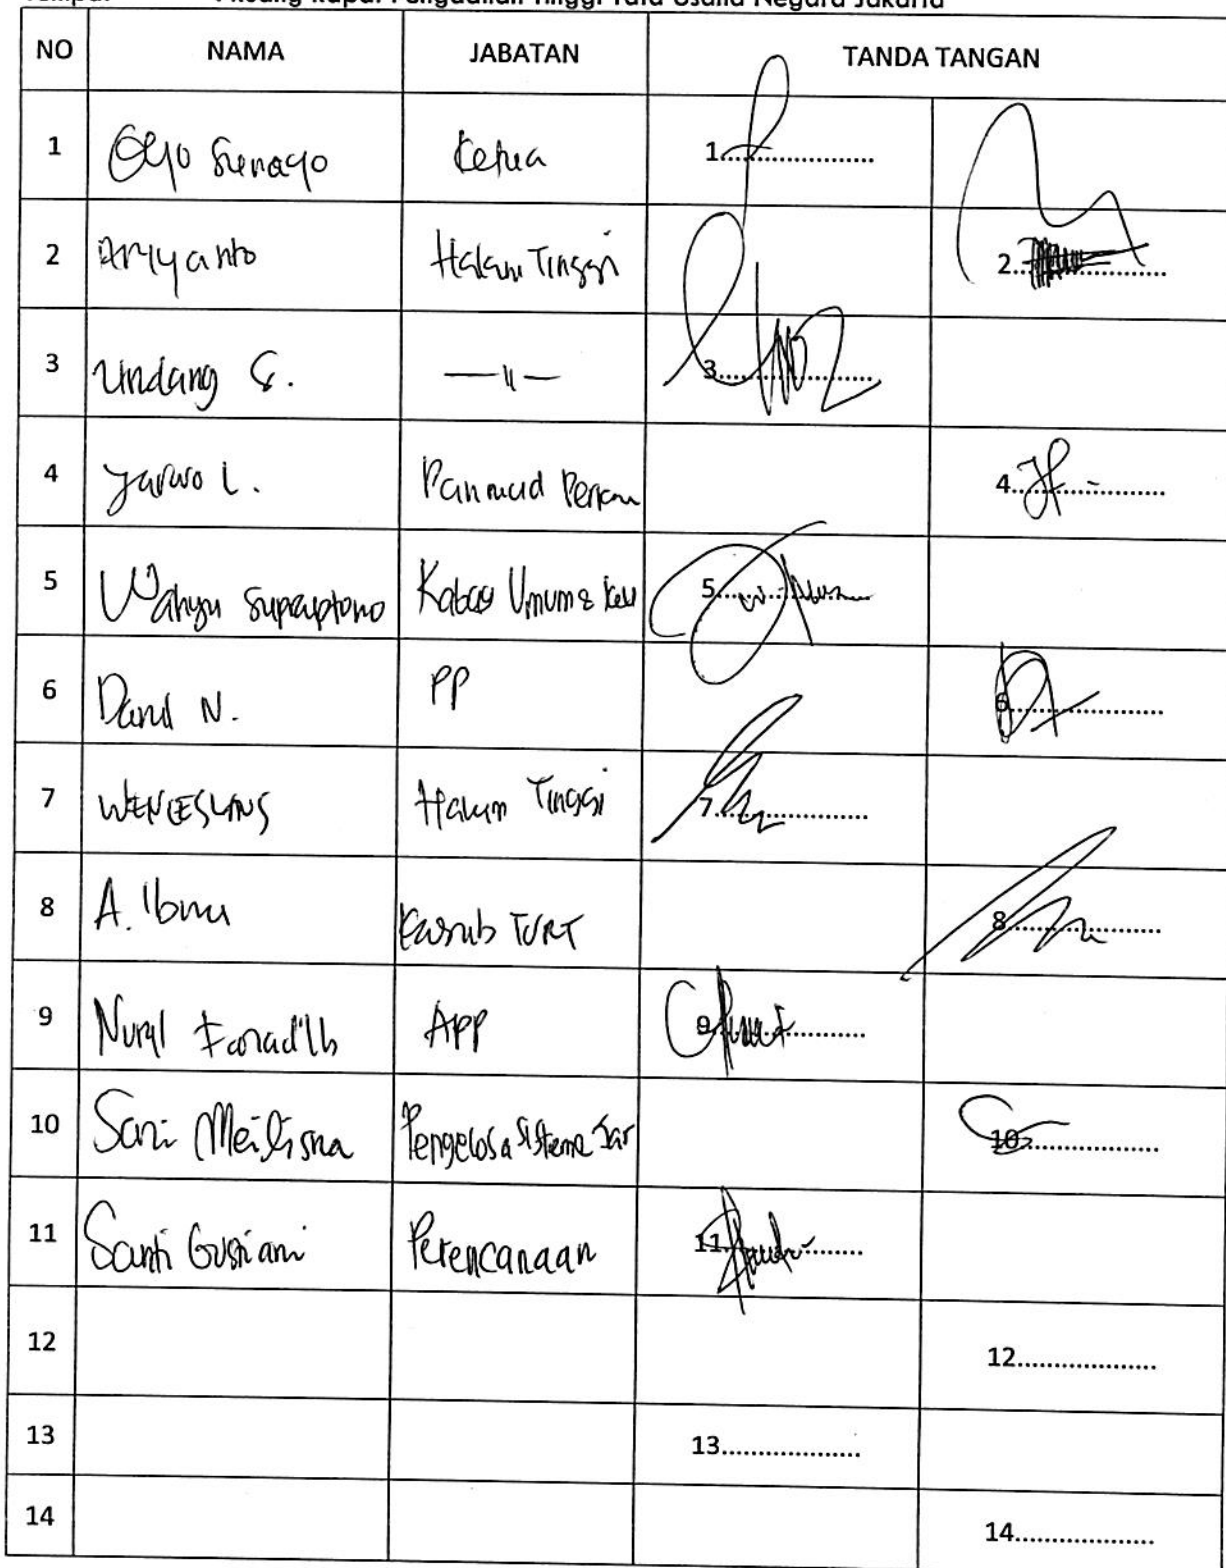 Ruang Rapat Pengadilan Tinggi Tata Usaha Negara Jakarta
NO NAMA JABATAN TANDA TANGAN
1 Ketua 1....................
2 Ariyanto Hakim Tinggi 2....................
3 Undang S. —〃— 3....................
4 Jarwo L. Panmud Perkara 4....................
5 Wahyu Supraptono Kabag Umum & keu 5....................
6 Danil N. PP 6....................
7 WENCESLAUS Hakim Tinggi 7....................
8 A. Ibnu Kasub TURT 8....................
9 Nurul APP 9....................
10 Sari Meilisna 10....................
11 Santi Gustiani Perencanaan 11....................
12 12....................
13 13....................
14 14....................